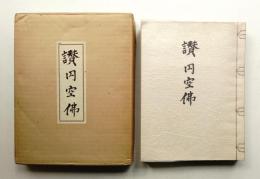 讃円空佛
讃円空佛